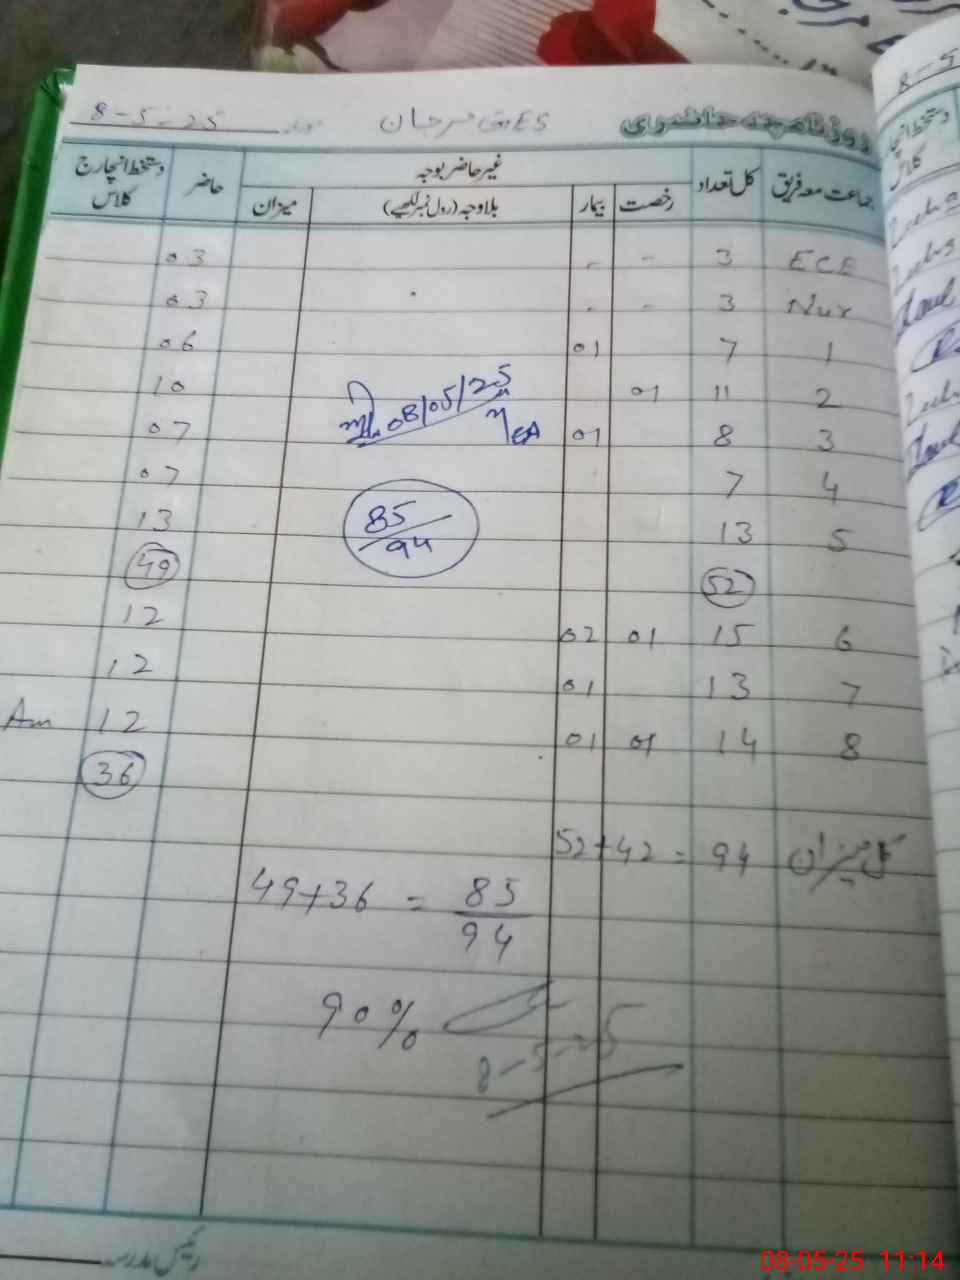 روزنامچہ حاضری GGES مرجان مورخہ 8-5-25
جماعت معہ فریق کل تعداد غیر حاضر بوجہ حاضر دستخط انچارج کلاس
رخصت بیمار بلاوجہ (رول نمبر لکھیے) میزان
ECE 3 - - 03
Nur 3 - - 03
1 7 01 06
2 11 01 10
3 8 01 07
4 7 07
5 13 13
52 49
6 15 01 02 12
7 13 01 12
8 14 01 01 12
36
08/05/25
MEA
85/94
کل میزان 94 = 52+42
49+36 = 85/94
90%
8-5-25
رئیس مدرسہ
8-5
دستخط انچارج
کلاس
08-05-25 11:14